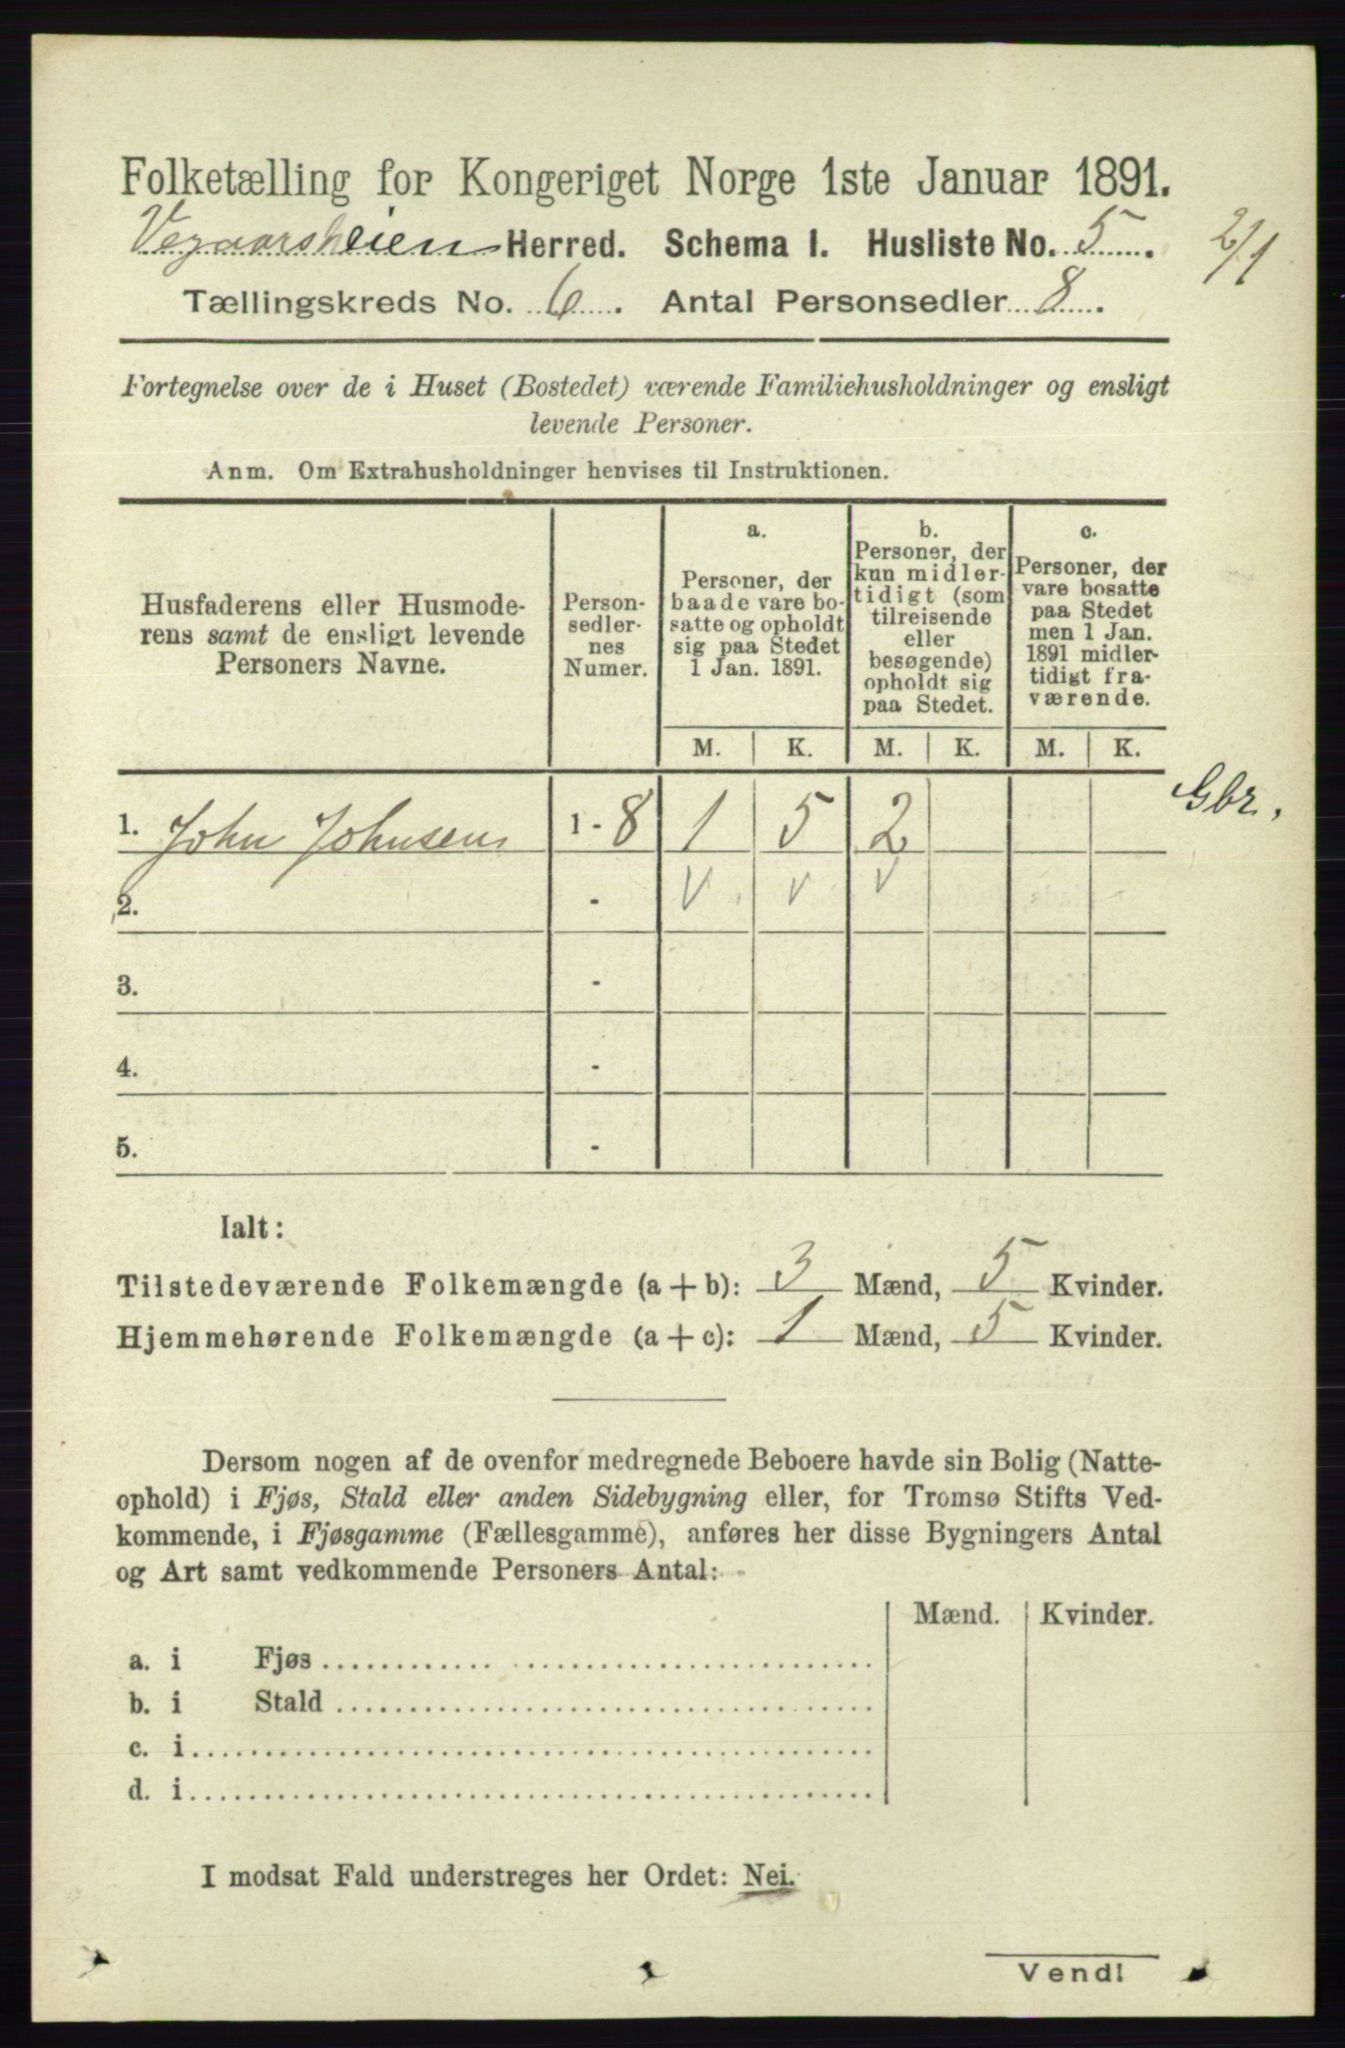 Folketælling for Kongeriget Norge 1ste Januar 1891.
Vegaarsheien Herred. Schema I. Husliste No. 5.
2/1
Tællingskreds No. 6. Antal Personsedler 8.
Fortegnelse over de i Huset (Bostedet) værende Familiehusholdninger og ensligt
levende Personer.
Anm. Om Extrahusholdninger henvises til Instruktionen.
Husfaderens eller Husmode-
rens samt de ensligt levende
Personers Navne.
Person-
sedler-
nes
Numer.
a.
Personer, der
baade vare bo-
satte og opholdt
sig paa Stedet
1 Jan. 1891.
b.
Personer, der
kun midler-
tidigt (som
tilreisende
eller
besøgende)
opholdt sig
paa Stedet.
c.
Personer, der
vare bosatte
paa Stedet
men 1 Jan.
1891 midler-
tidigt fra-
værende.
M. K. M. K. M. K.
1. John Johnsen 1 - 8 1 5 2
Gbr.
2. - V V V
3. -
4. -
5. -
Ialt:
Tilstedeværende Folkemængde (a + b): 3 Mænd, 5 Kvinder.
Hjemmehørende Folkemængde (a + c): 1 Mænd, 5 Kvinder.
Dersom nogen af de ovenfor medregnede Beboere havde sin Bolig (Natte-
ophold) i Fjøs, Stald eller anden Sidebygning eller, for Tromsø Stifts Ved-
kommende, i Fjøsgamme (Fællesgamme), anføres her disse Bygningers Antal
og Art samt vedkommende Personers Antal:
Mænd. Kvinder.
a. i Fjøs
b. i Stald
c. i
d. i
I modsat Fald understreges her Ordet: Nei.
Vend!